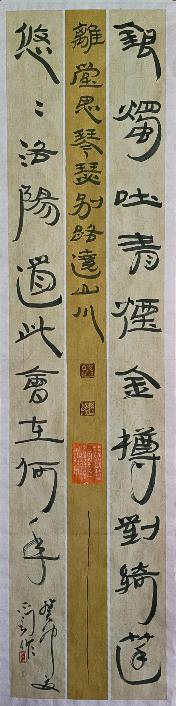 銀燭吐青煙金樽對綺筵
離堂思琴瑟別路遶山川
悠〻洛陽道此會在何年
癸卯夏
作